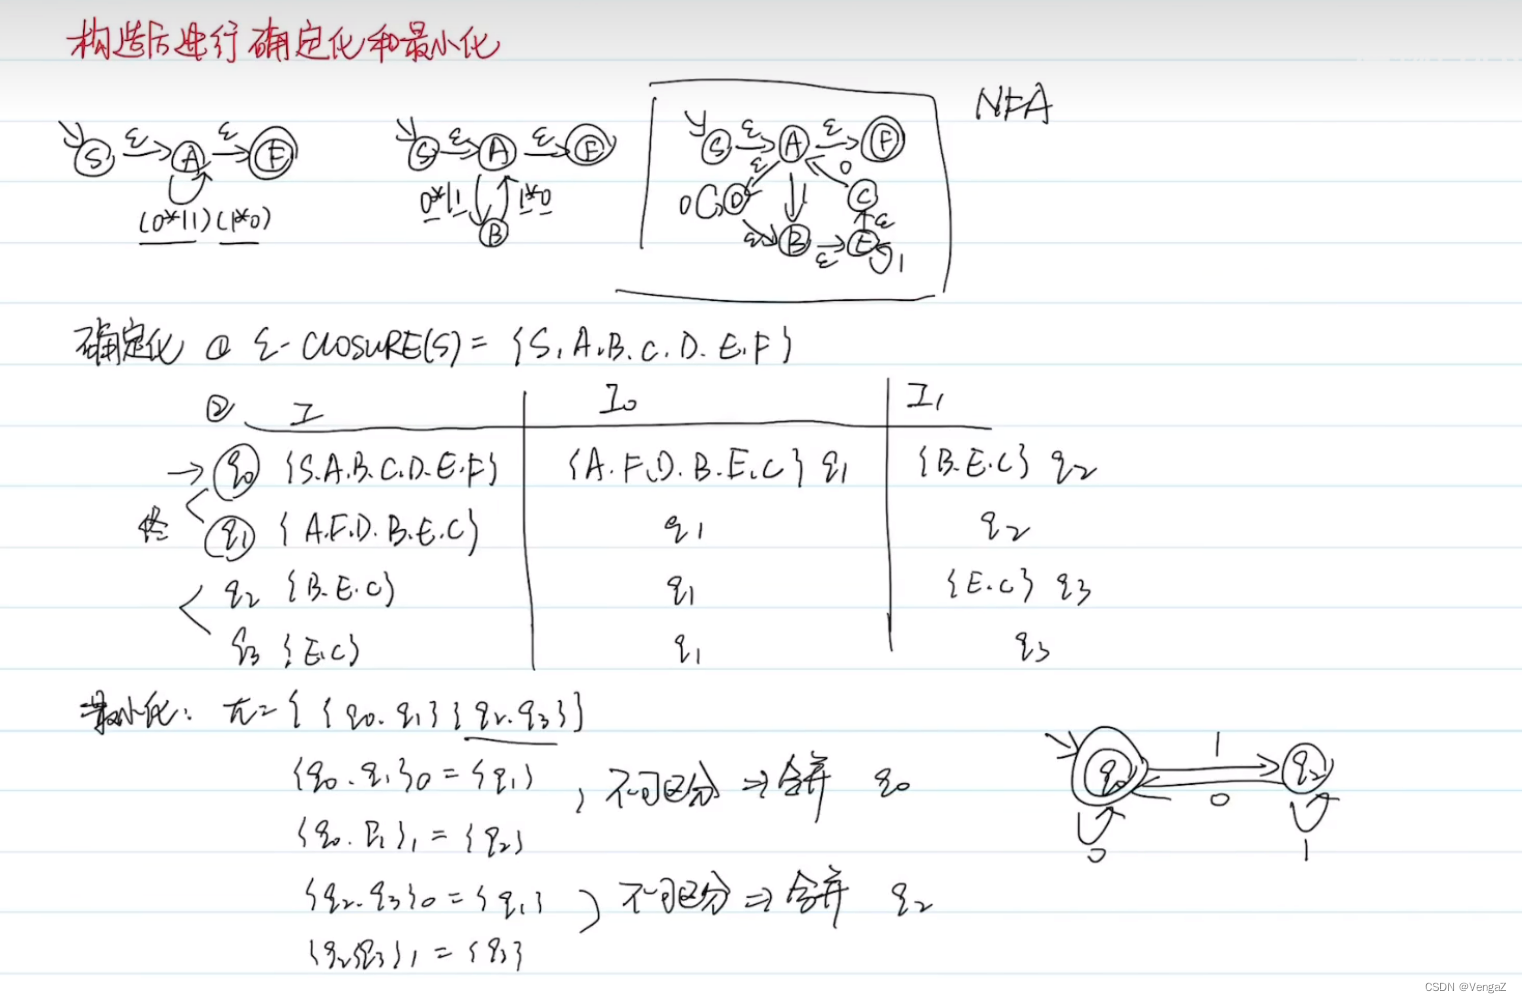 构造后进行确定化和最小化
NFA
S ε A ε F
(0*|1)(1*0)
S ε A ε F
0*|1 1*0
B
S ε A ε F
ε 0
0 D 1 C
ε B ε E ε
1
确定化 ① ε-CLOSURE(S) = {S.A.B.C.D.E.F}
② I I₀ I₁
→ q₀ {S.A.B.C.D.E.F} {A.F.D.B.E.C} q₁ {B.E.C} q₂
终 q₁ {A.F.D.B.E.C} q₁ q₂
q₂ {B.E.C} q₁ {E.C} q₃
q₃ {E.C} q₁ q₃
最小化: π={{q₀.q₁}{q₂.q₃}}
{q₀.q₁}0 = {q₁} , 不可区分 ⇒ 合并 q₀
{q₀.q₁}₁ = {q₂}
{q₂.q₃}0 = {q₁} ) 不可区分 ⇒ 合并 q₂
{q₂q₃}₁ = {q₃}
q₀ 1 q₂
0
0 1
CSDN @VengaZ